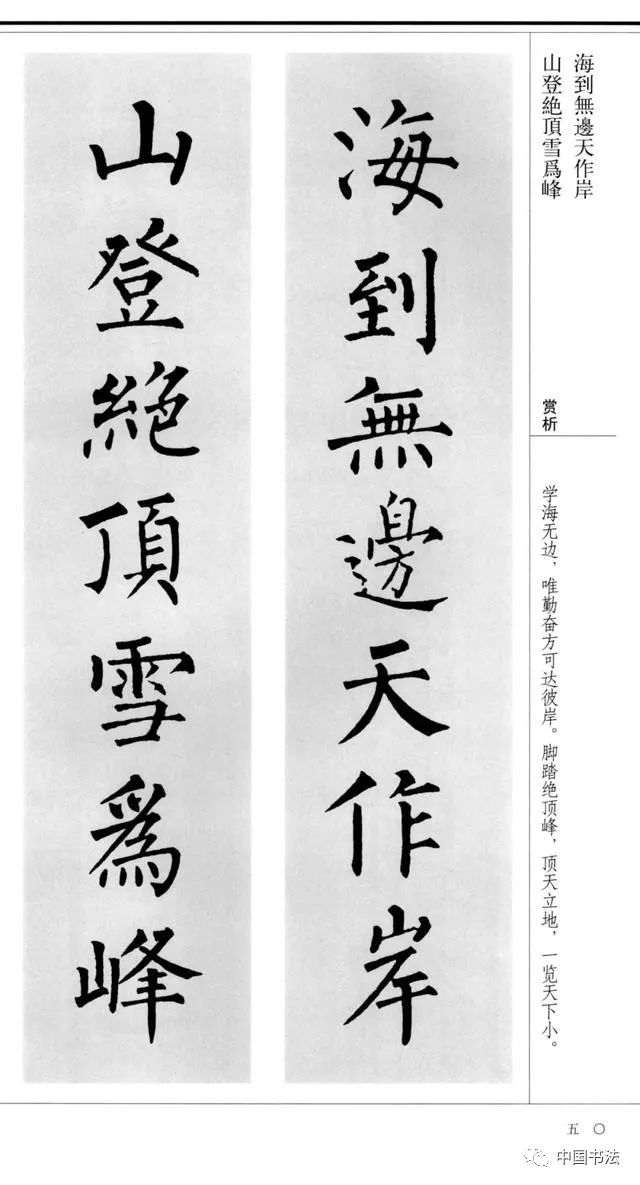 海到無邊天作岸
山登絶頂雪爲峰
赏析
学海无边，唯勤奋方可达彼岸。脚踏绝顶峰，顶天立地，一览天下小。
海到無邊天作岸
山登絶頂雪爲峰
五〇
中国书法